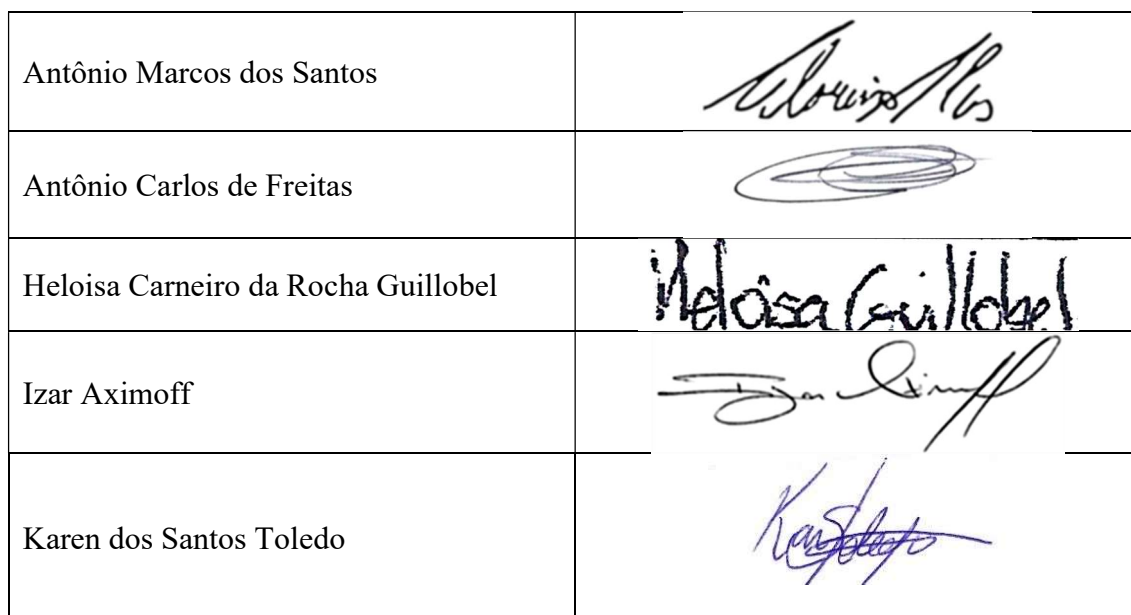 Antônio Marcos dos Santos
Antônio Carlos de Freitas
Heloisa Carneiro da Rocha Guillobel
Heloisa Guillobel
Izar Aximoff
Izar Aximoff
Karen dos Santos Toledo
Karen Toledo